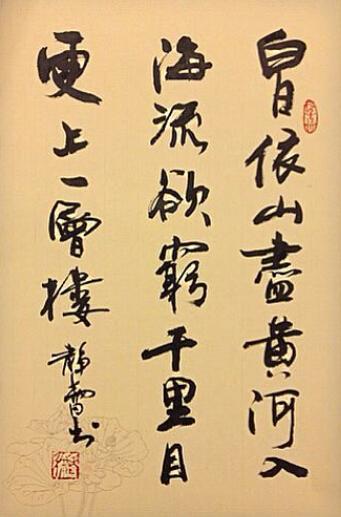 白日依山盡黃河入
海流欲窮千里目
更上一層樓
靜雪書